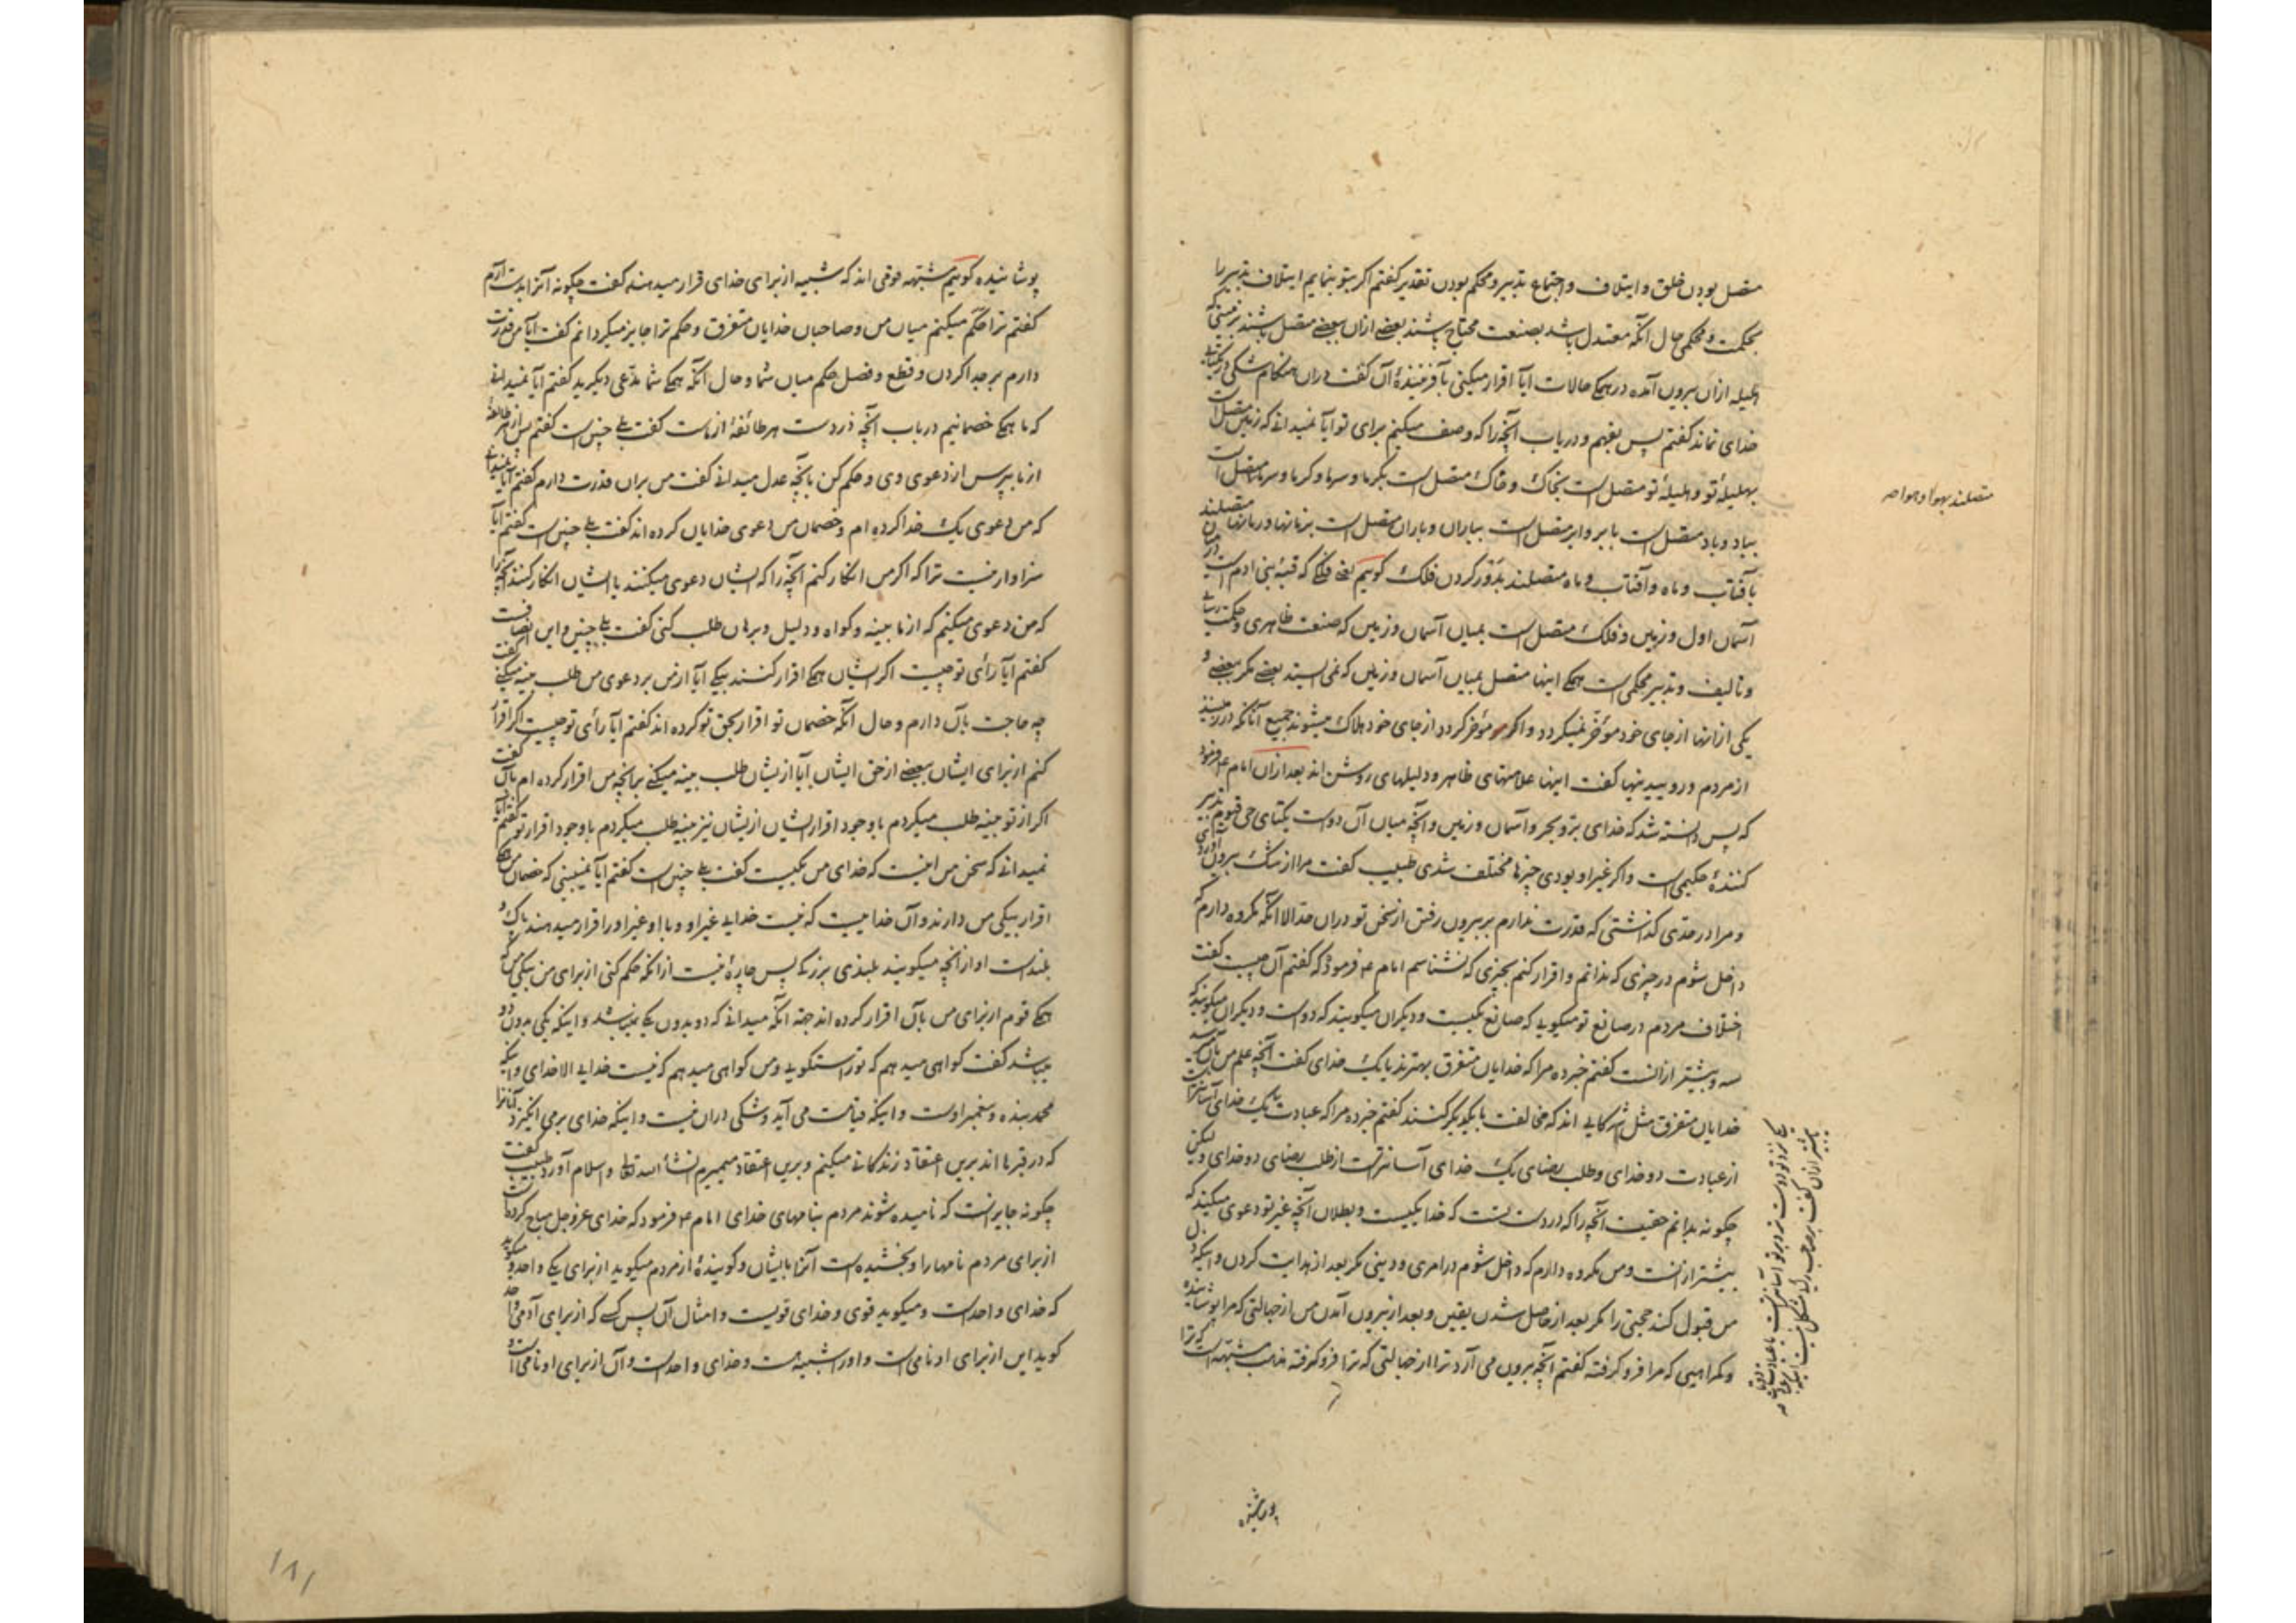 متصل بودن خلق و ایتلاف و اجتماع تدبیر و محکم بودن تقدیر کفتم اکر بتو بنمایم ایتلاف تدبیر را
بحکمت و محکمی حال آنکه معتدل باشد بصنعت محتاج باشند بعضی ازان ببعضی متصل باشند
هلیله ازان بیرون آمده در همکی حالات آیا اقرار میکنی بآفرینندهٔ آن کفت دران هنکام شکی در
خدای نماند کفتم پس بفهم و دریاب آنچه را که وصف میکنم برای تو آیا نمیدانی که زمین متصل است
بهلیلهٔ تو و هلیلهٔ تو متصل است بخاک و خاک متصل است بکرما و سرما و کرما و سرما متصل است
متصلند بهوا و هوا صه
بباد و باد متصل است بابر و ابر متصل است بباران و باران متصل است بزمانها و زمانها متصلند
بآفتاب و ماه و آفتاب و ماه متصلند بدور کردن فلک کوییم یعنی فلکی که قبهٔ بنی ادم است
آسمان اول و زمین و فلک متصل است بمیان آسمان و زمین که صنعت ظاهری و حکمت
و تالیف و تدبیر محکمی است همکی اینها متصل بمیان آسمان و زمین که نمی ایستد بعضی مکر ببعضی و
یکی ازانها از جای خود مؤخر نمیکردد و اکر مؤخر کردد از جای خود هلاک میشوند جمیع آنانکه در زمینند
از مردم و روییدنیها کفت اینها علامتهای ظاهر و دلیلهای روشن اند بعد ازان امام ع فرمود
که پس دانسته شد که خدای بر و بحر و آسمان و زمین و آنچه میان آن دوست یکتای حی قیوم تدبیر
کنندهٔ حکیمی است و اکر غیر او بودی چیزها مختلف شدی طبیب کفت مرا از شک بیرون آوردی
و مرا در حدی کذاشتی که قدرت ندارم بر بیرون رفتن از سخن تو دران حد الا آنکه مکروه دارم که
داخل شوم در چیزی که ندانم و اقرار کنم بچیزی که نشناسم امام ع فرمود که کفتم آن چیست کفت
اختلاف مردم در صانع تو میکویی که صانع یکیست و دیکران میکویند که دوست و دیکران میکویند که
سه و بیشتر ازانست کفتم خبر ده مرا که خدایان متفرق بهترند یا یک خدای کفت آنچه علم من بآن
خدایان متفرق مثل شرکایی اند که مخالفت با یکدیکر کنند کفتم خبر ده مرا که عبادت یک خدای آسانتر است
از عبادت دو خدای و طلب رضای یک خدای آسانتر است از طلب رضای دو خدای و لیکن
چکونه بدانم حقیت آنچه را که در دست تست که خدا یکیست و بطلان آنچه غیر تو دعوی میکنند که
بیشتر ازانست و من مکروه دارم که داخل شوم در امری و دینی مکر بعد از هدایت کردن و اینکه دل
من قبول کند حجتی را مکر بعد از حاصل شدن یقین و بعد از بیرون آمدن من از جهالتی که مرا پوشانیده
و کمراهیی که مرا فرو کرفته کفتم آنچه بیرون می آرد ترا از جهالتی که ترا فرو کرفته مذهب مشبهه است که ترا
پوشانیده
پوشانیده کوییم مشبهه قومی اند که شبیه از برای خدای قرار میدهند کفت چکونه آنرا بدست آرم
کفتم ترا حکم میکنم میان من و صاحبان خدایان متفرق و حکم ترا جایز میکردانم کفت آیا من قدرت
دارم بر جدا کردن و قطع و فصل حکم میان شما و حال آنکه همکی شما مدعی دیکرید کفتم آیا نمیدانی
که ما همکی خصمانیم در باب آنچه در دست هر طائفهٔ از ماست کفت بلی چنین است کفتم پس از هر طائفهٔ
از ما بپرس از دعوی وی و حکم کن بآنچه عدل میدانی کفت من بران قدرت دارم کفتم آیا نمیدانی
که من دعوی یک خدا کرده ام و خصمان من دعوی خدایان کرده اند کفت بلی چنین است کفتم آیا
سزاوار نیست ترا که اکر من انکار کنم آنچه را که ایشان دعوی میکنند یا ایشان انکار کنند آنچه را
که من دعوی میکنم که از ما بینه و کواه و دلیل و برهان طلب کنی کفت بلی چنین و این انصافست
کفتم آیا رأی تو چیست اکر ایشان همکی اقرار کنند بیکی آیا از من بر دعوی من طلب بینه میکنی کفت
چه حاجت بآن دارم و حال آنکه خصمان تو اقرار بحق تو کرده اند کفتم آیا رأی تو چیست اکر اقرار
کنم از برای ایشان ببعضی از حق ایشان آیا از یشان طلب بینه میکنی بر آنچه من اقرار کرده ام بآن کفت
اکر از تو بینه طلب میکردم با وجود اقرار ایشان از یشان نیز بینه طلب میکردم با وجود اقرار تو کفتم آیا
نمیدانی که سخن من اینست که خدای من یکیست کفت بلی چنین است کفتم آیا نمیبینی که خصمان من همکی
اقرار بیکی من دارند و آن خداییست که نیست خدایی غیر او و با او غیر او را قرار میدهند پاک و
بلند است او از آنچه میکویند بلندی بزرکی پس چارهٔ نیست ازانکه حکم کنی از برای من بیکی من که
همکی قوم از برای من بآن اقرار کرده اند جهة آنکه میدانی که دو بدون یکی نمیباشد و اینکه یکی بدون دو
میباشد کفت کواهی میدهم که تو راستکویی و من کواهی میدهم که نیست خدایی الا خدای و اینکه
محمد بنده و پیغمبر اوست و اینکه قیامت می آید و شکی دران نیست و اینکه خدای برمی انکیزد آنانرا
که در قبرها اند برین اعتقاد زندکانی میکنم و برین اعتقاد میمیرم انشأ الله تعالی و اسلام آورد طبیب کفت
چکونه جایز است که نامیده شوند مردم بنامهای خدای امام ع فرمود که خدای عز و جل مباح کرده است
از برای مردم نامها را و بخشیده است آنرا بایشان و کویندهٔ از مردم میکوید از برای یکی واحد و میکوید
که خدای واحد است و میکوید قوی و خدای قویست و امثال آن پس کسی که از برای آدمی واحد
کوید این از برای او نامی است و او را شبیه هست و خدای واحد است و آن از برای او نامی است و
۱۸۱